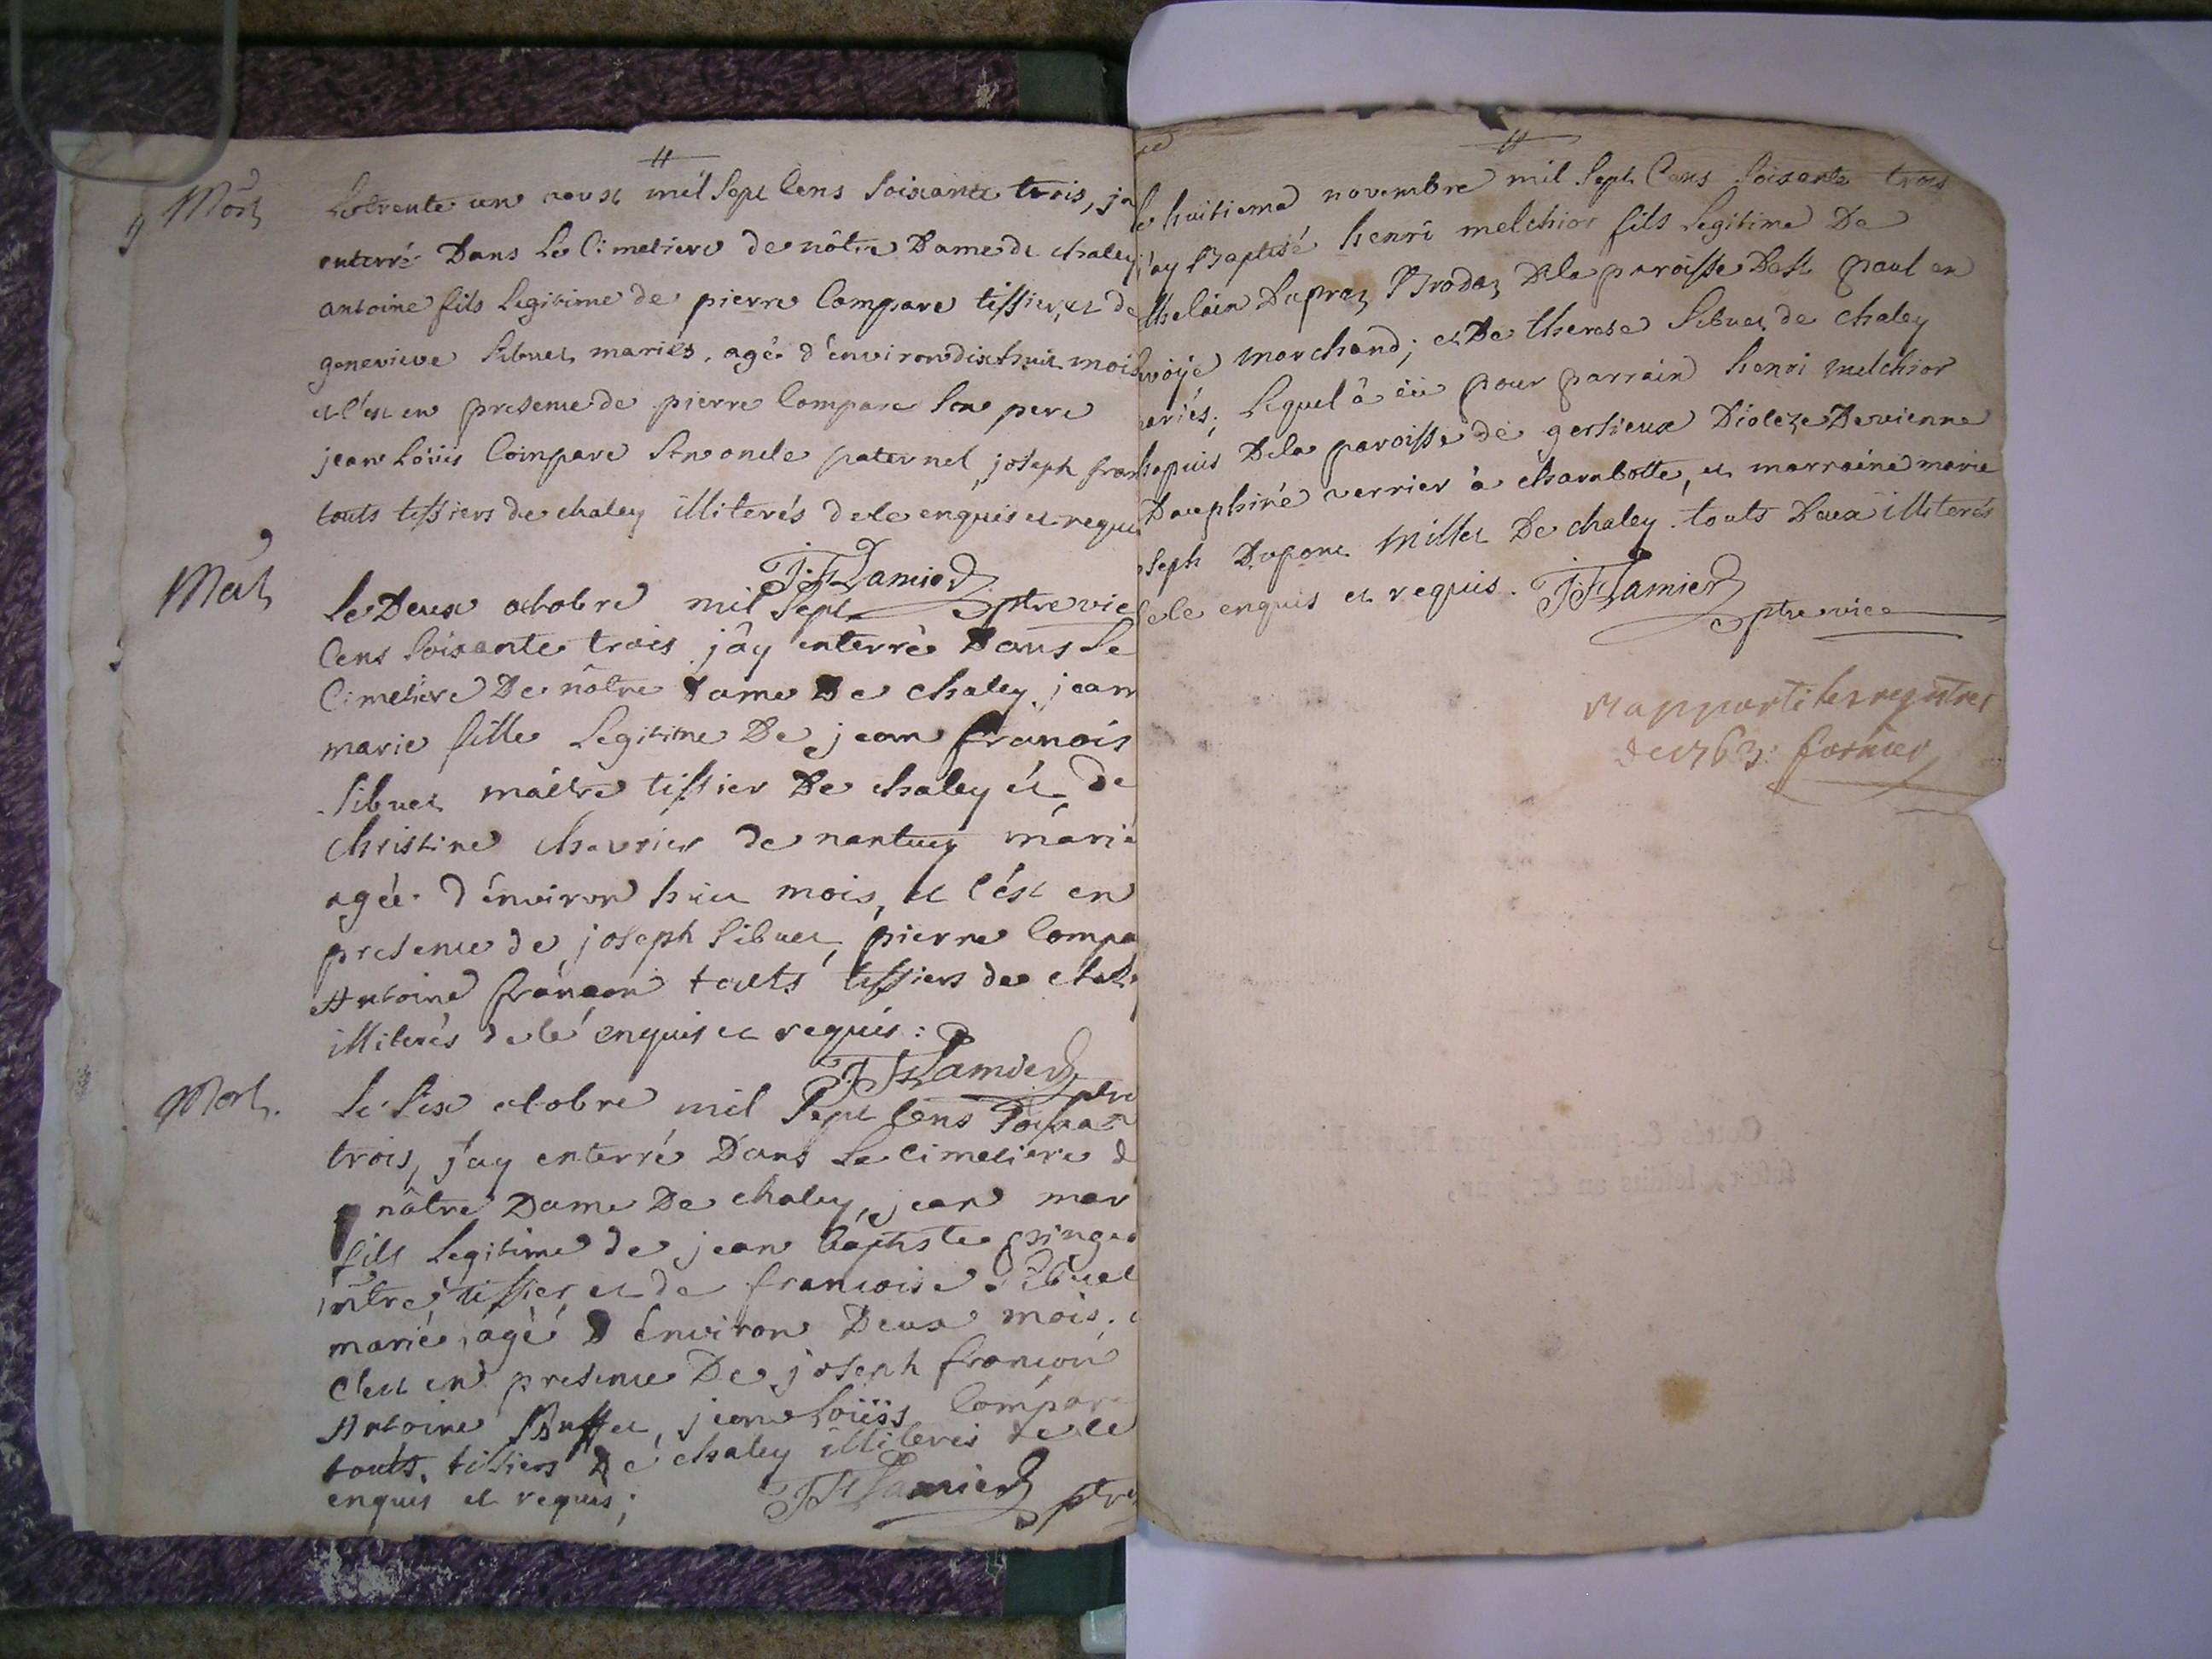 Mort
Le trente un aoust mil Sept Cens Soixante trois, ja
enterré Dans Le Cimetiere de nôtre Dame de chaley
antoine fils Legitime de pierre Compare tissier, et de
genevieve Sibuet mariés, agé d'environ dix huit mois
et c'est en presence de pierre Compare Son pere
jean Loüis Compare Son oncle paternel, joseph fran
touts tissiers de chaley illiterés de ce enquis et requis
J: F Lamier ptre vic
Mort
Le Deux octobre mil Sept
Cens Soixante trois j'ay enterré Dans Le
Cimetiere De nôtre Dame De chaley, jean
marie fille Legitime De jean francois
Sibuet maître tissier De chaley et de
christine chevrier de nantuy marié
agée d'environ huit mois, et c'est en
presence de joseph Sibuet, pierre Compa
Antoine françon touts tissiers de chale
illiterés de ce enquis et requis:
J: F Lamier ptre
Mort.
Le Six octobre mil Sept Cens Soixan
trois, j'ay enterré Dans Le Cimetiere d
nôtre Dame De chaley, jean mar
fils Legitime de jean baptiste
mtre tissier, et de francoise Sibuet
marié, agé D'environ Deux mois,
c'est en presence De joseph françon
Antoine Buffet, jean Loüis Compare
touts tissiers De chaley illiterés de ce
enquis et requis;
J F Lamier ptre
Le huitieme novembre mil Sept Cens Soixante trois
j'ay Baptisé henri melchior fils Legitime De
Dupraz Brodaz De la paroisse De St paul en
marchand; et De therese Sibuet de chaley
ariés; Lequel â eü pour parrain henri melchior
hapuis De la paroisse de gersieux Dioceze De vienne
Dauphiné verrier à charabotte, et marraine marie
seph Dupont Millet De chaley. touts Deux illiterés
de ce enquis et requis. J: F Lamier
ptre vice
rapporté les registres
de 1763: fornier